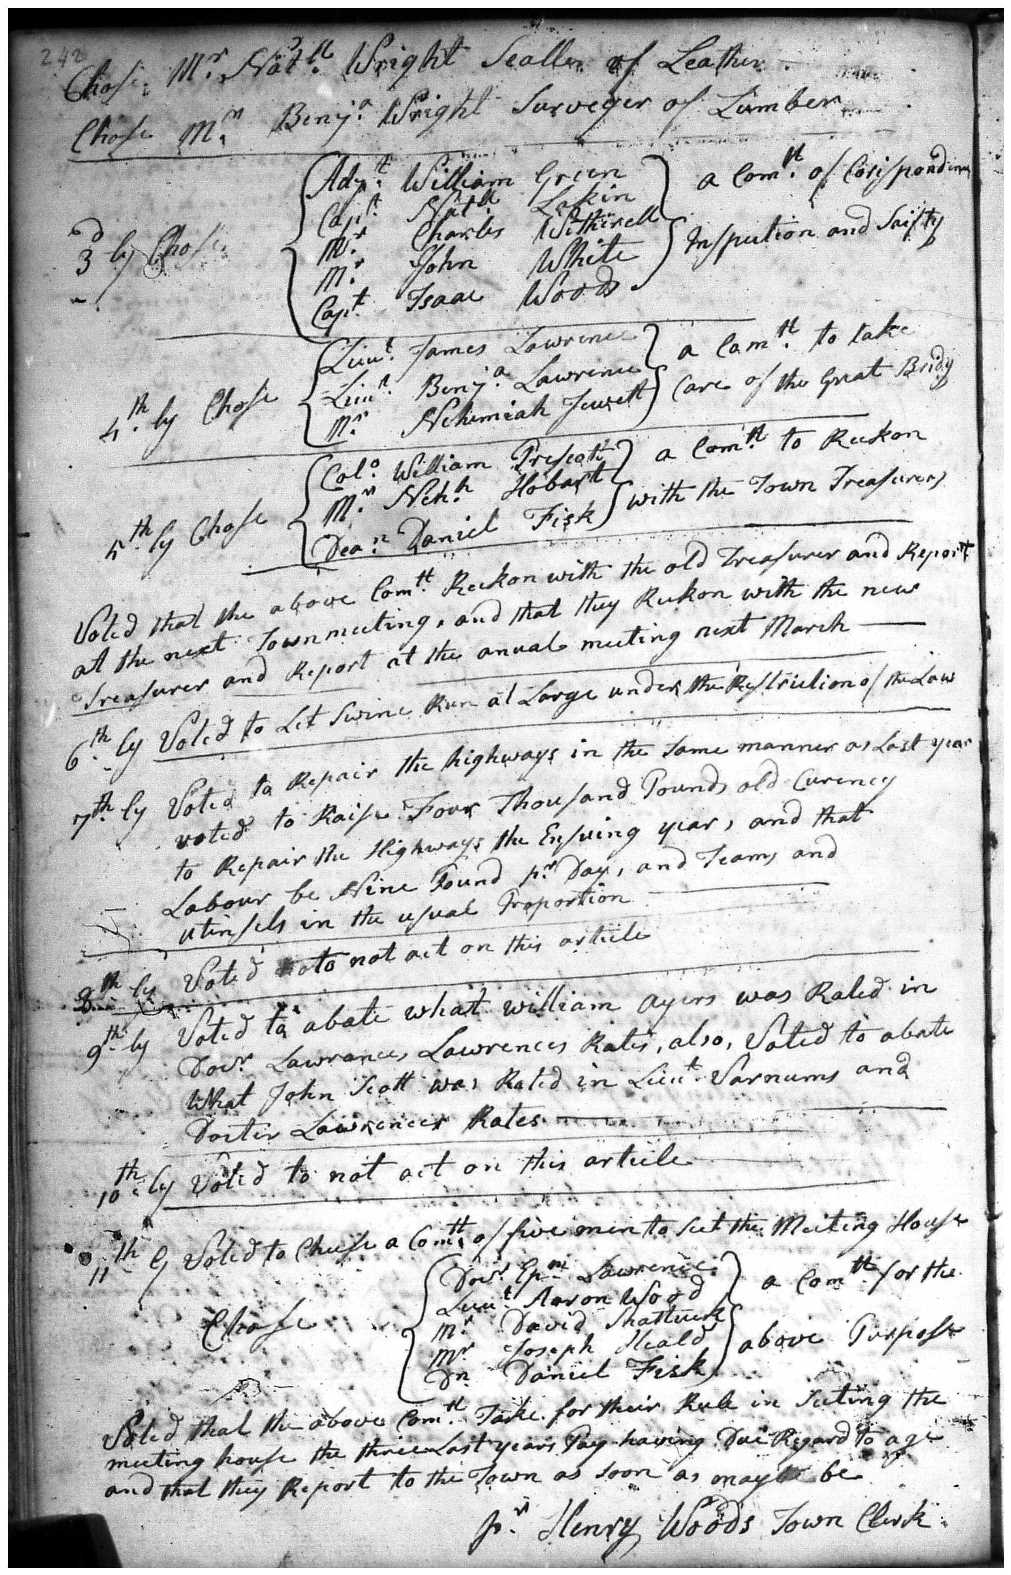 242
Chose Mr. Natll. Wright Sealler of Leather
Chose Mr. Benja. Wright Surveyer of Lumber
3dly Chose
Adjt. William Green
Capt. Natll Lakin
Mr. Charles Witherell
Mr. John White
Capt Isaac Woods
a Comtt. of Corispondence
Inspection and Saifty
4thly Chose
Lieut. James Lawrence
Lieut. Benja. Lawrence
Mr. Nehimiah Jewett
a Comtt. to take
Care of the Great Bridg
5thly Chose
Colo. William Prescott
Mr Nehh Hobart
Dean. Daniel Fisk
a Comtt to Reckon
with the Town Treasurers
Voted that the above Comtt. Reckon with the old Treasurer and Report
at the next Townmeeting, and that they Reckon with the new
Treasurer and Report at the anual meeting next March
6thly Voted to Let Swine Run at Large under the Restriction of the Law
7thly Voted to Repair the highways in the Same manner as Last year
voted to Raise Four Thousand Pounds old Curency
to Repair the Highways the Ensuing year, and that
Labour be Nine Pound pr Day, and Teams and
utinsels in the usual Proportion
8thly Voted to not act on this article
9thly Voted to abate what william ayers was Rated in
Docr. Lawrances Lawrences Rates, also, Voted to abate
What John Scott was Rated in Lieut. Varnums and
Docter Lawrences Rates
10thly Voted to not act on this article
11thly Voted to Chuse a Comtt. of five men to Seet the Meeting House
Chose
Docr. Epm. Lawrence
Lieut Aaron Wood
Mr David Shattuck
Mr Joseph Heald
Dn. Daniel Fisk
a Comtt for the
above Purpose
Voted that the above Comtt. Take for their Rule in Seeting the
meeting house the three Last years Pay having Due Regard to age
and that they Report to the Town as soon as may be
pr. Henry Woods Town Clerk